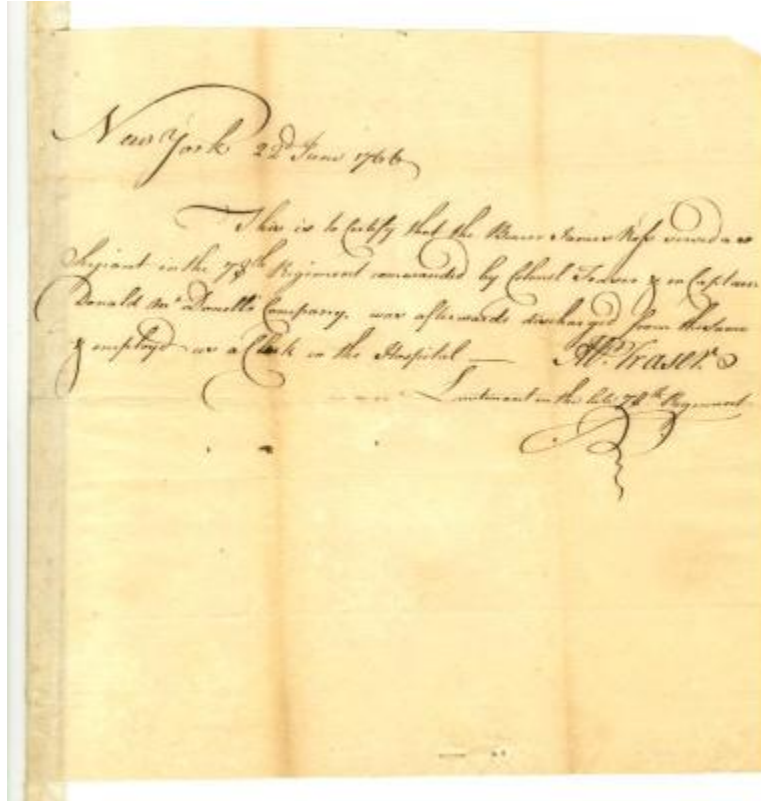 New York 22d June 1766
This is to Certify that the Bearer James Ross served as
Serjeant in the 78th Regiment commanded by Colonel Fraser & in Captain
Donald McDonell's Company, was afterwards discharged from the same
& employed as a Clerk in the Hospital — Fraser
Lieutenant in the late 78th Regiment